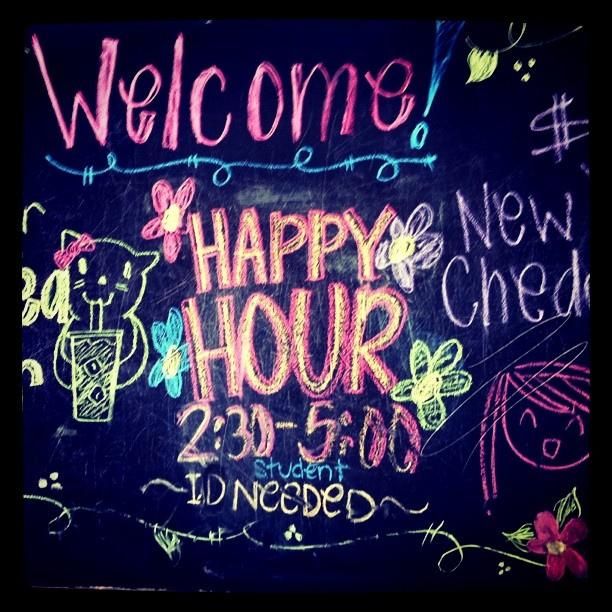 Welcome!
$
New
HAPPY
HOUR
2:30-5:00
student
~ID NEEDED~